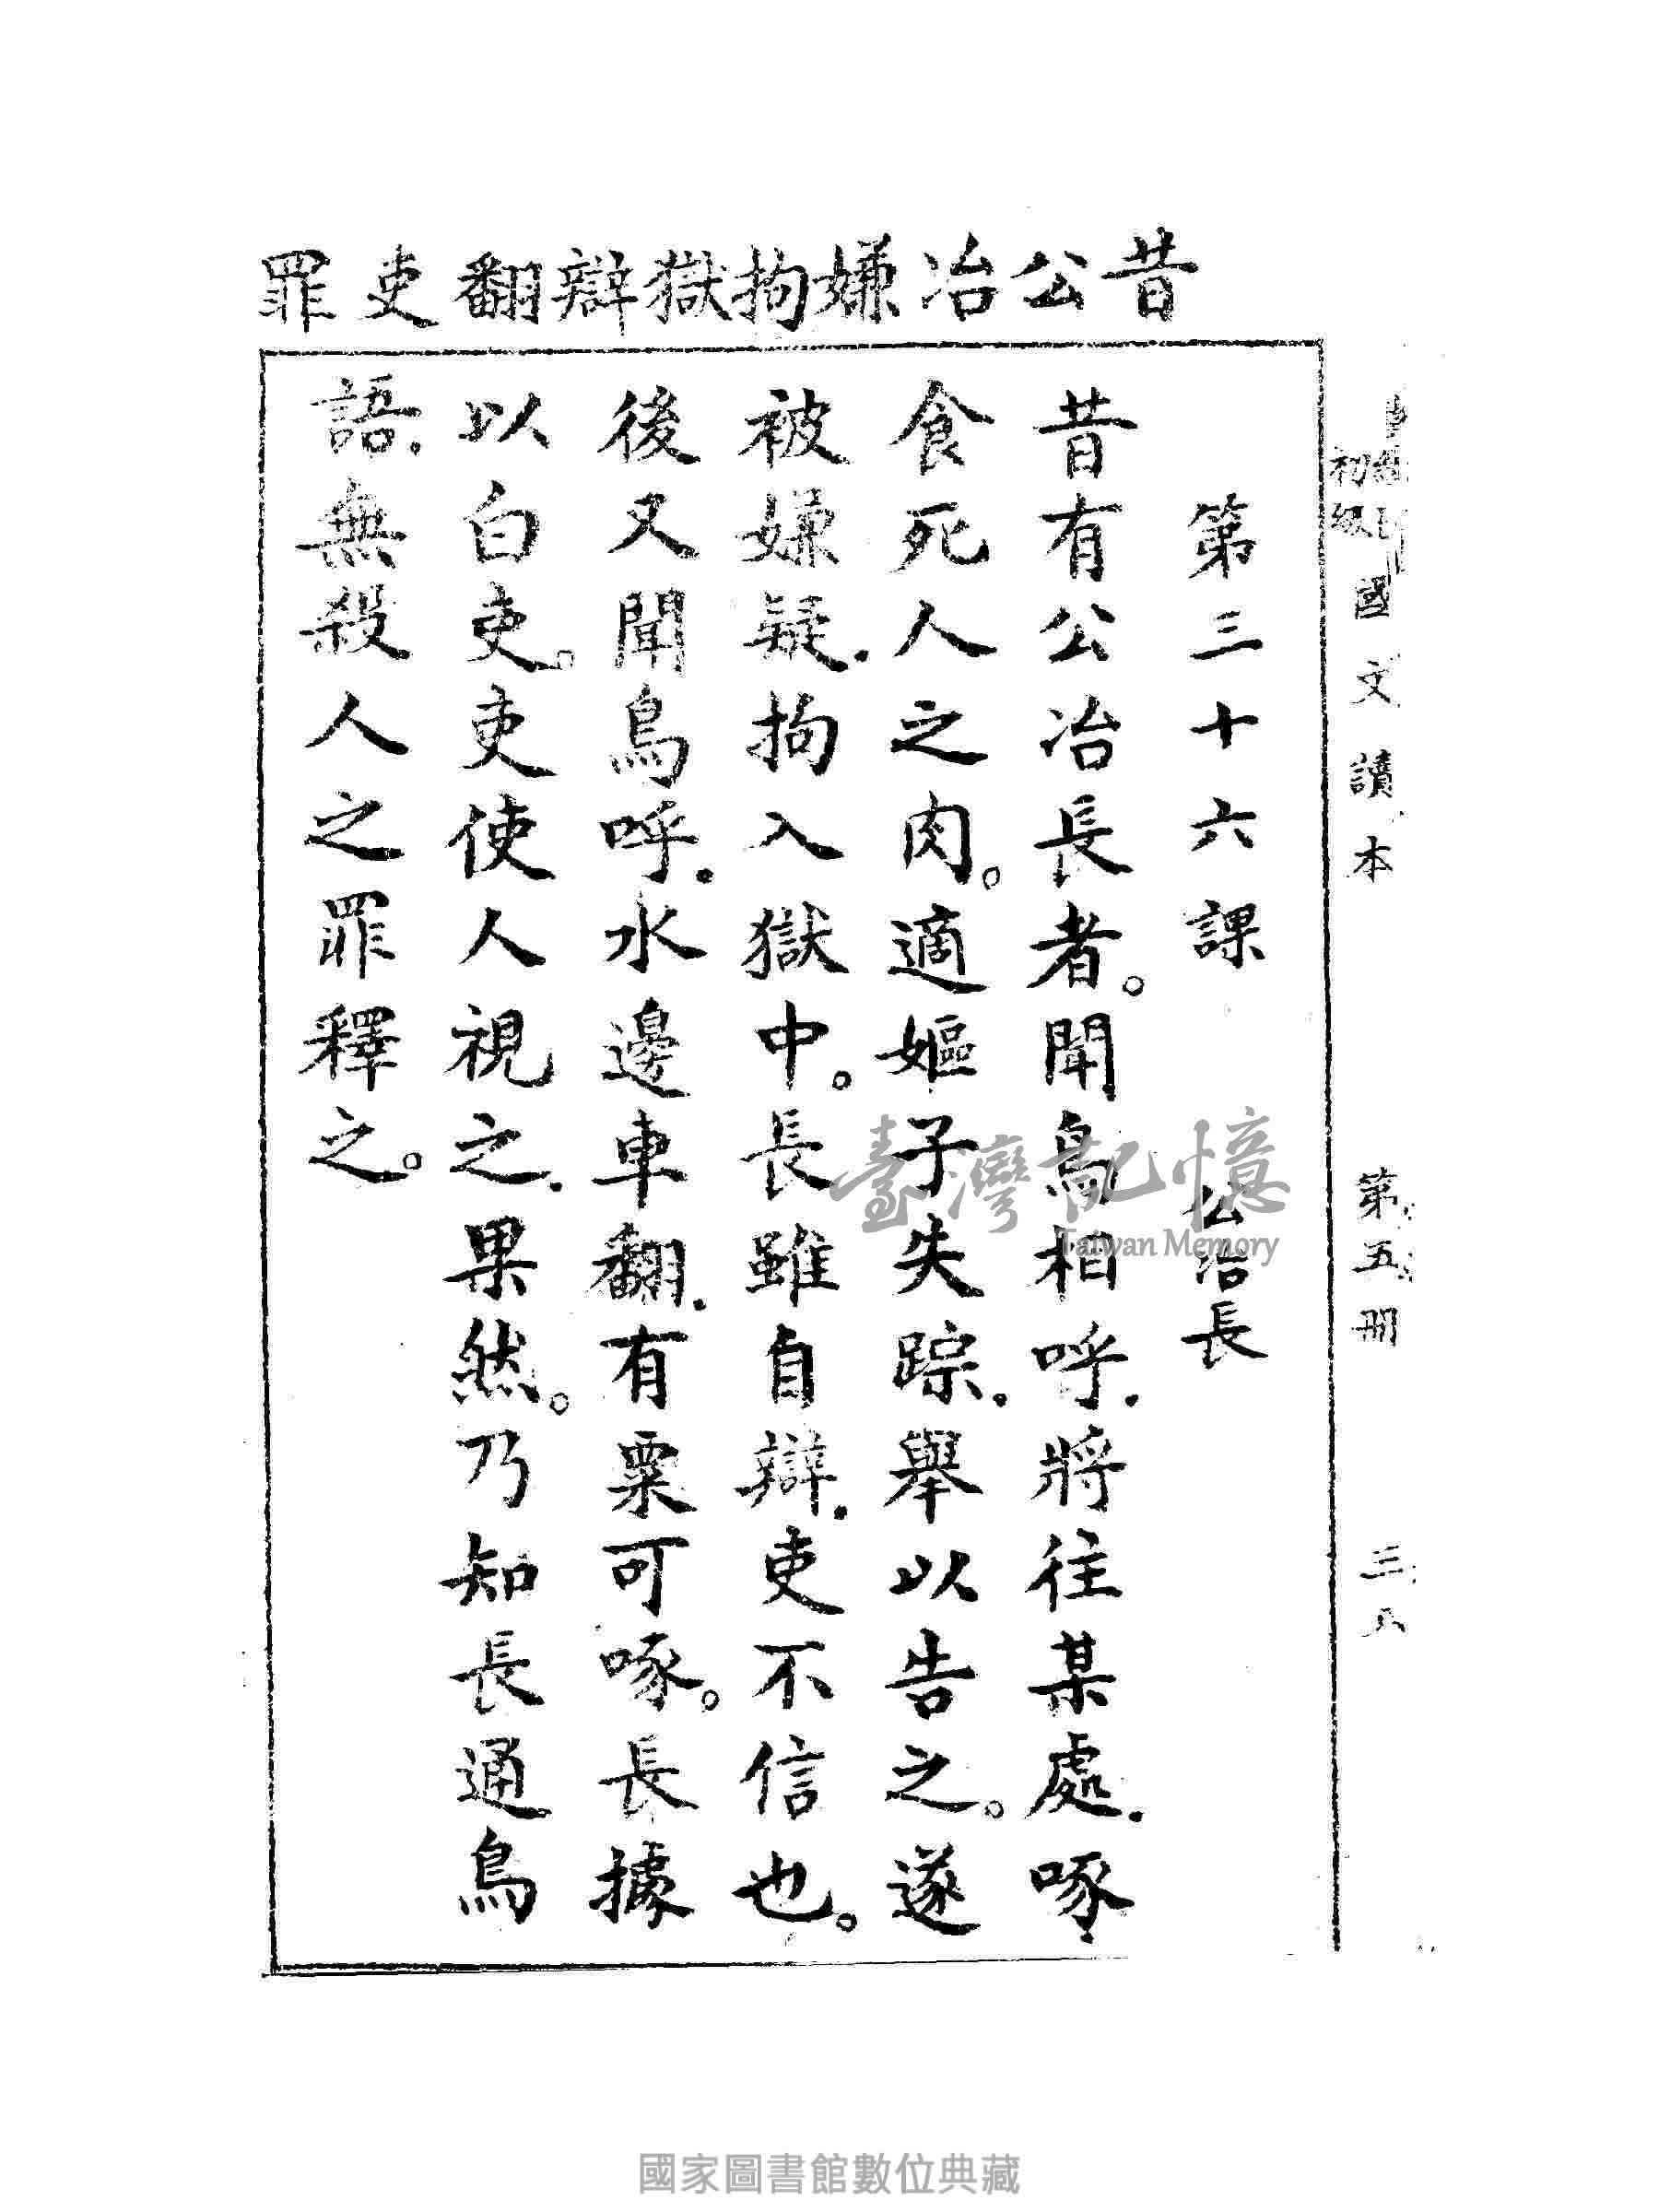 初級 國文讀本 第五册 三八
昔公冶嫌拘獄辯翻吏罪
第三十六課 公冶長
昔有公冶長者。聞鳥相呼.將往某處.啄
食死人之肉。適嫗子失踪.舉以告之。遂
被嫌疑.拘入獄中。長雖自辯.吏不信也。
後又聞鳥呼.水邊車翻.有粟可啄。長據
以白吏。吏使人視之.果然。乃知長通鳥
語.無殺人之罪釋之。
臺灣記憶
Taiwan Memory
國家圖書館數位典藏